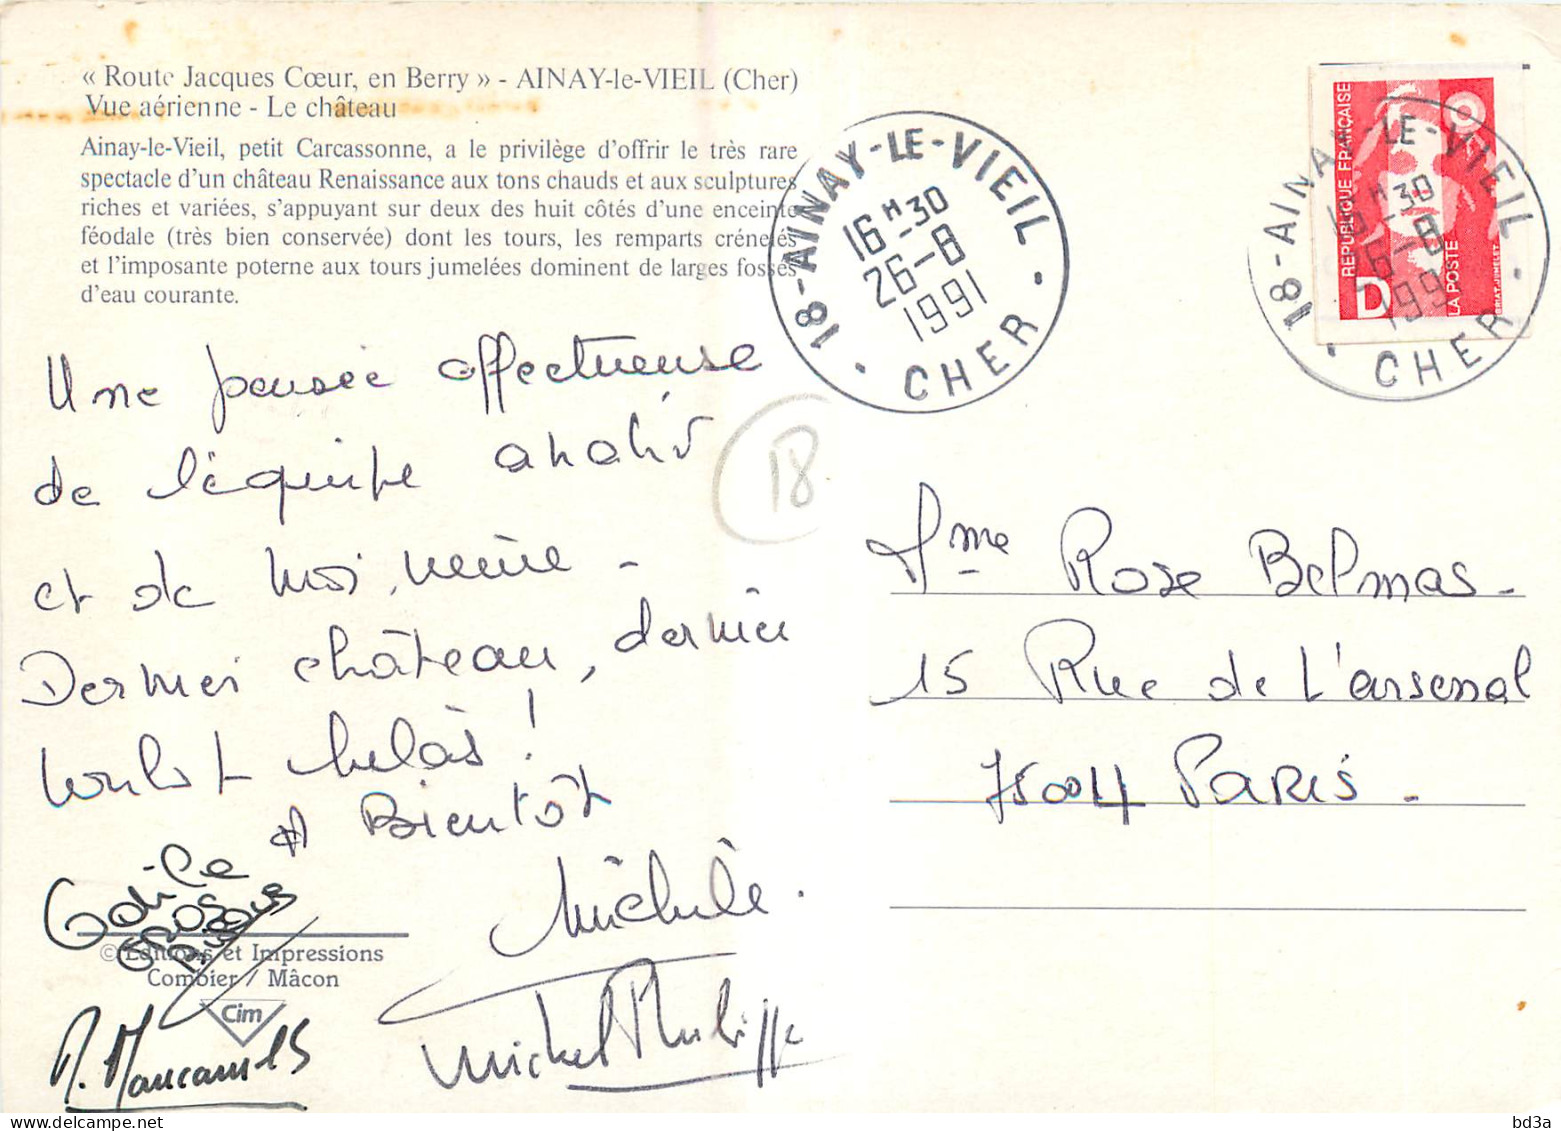 « Route Jacques Cœur, en Berry » - AINAY-le-VIEIL (Cher)
Vue aérienne - Le château
Ainay-le-Vieil, petit Carcassonne, a le privilège d'offrir le très rare
spectacle d'un château Renaissance aux tons chauds et aux sculptures
riches et variées, s'appuyant sur deux des huit côtés d'une enceinte
féodale (très bien conservée) dont les tours, les remparts crénelés
et l'imposante poterne aux tours jumelées dominent de larges fossés
d'eau courante.
Une pensée affectueuse
de l'équipe
et de moi, même -
Dernier château, dernier
hélas !
A Bientôt
Odile
GROS
Michèle.
Michel Philippe
© Editions et Impressions
Combier / Mâcon
Cim
18 - AINAY-LE-VIEIL
16 H 30
26 - 8
1991
CHER
18
REPUBLIQUE FRANÇAISE
D
LA POSTE
18 - AINAY-LE-VIEIL
16 H 30
26 - 8
1991
CHER
Mme Rose Belmas -
15 Rue de L'arsenal
75004 PARIS -
bd3a